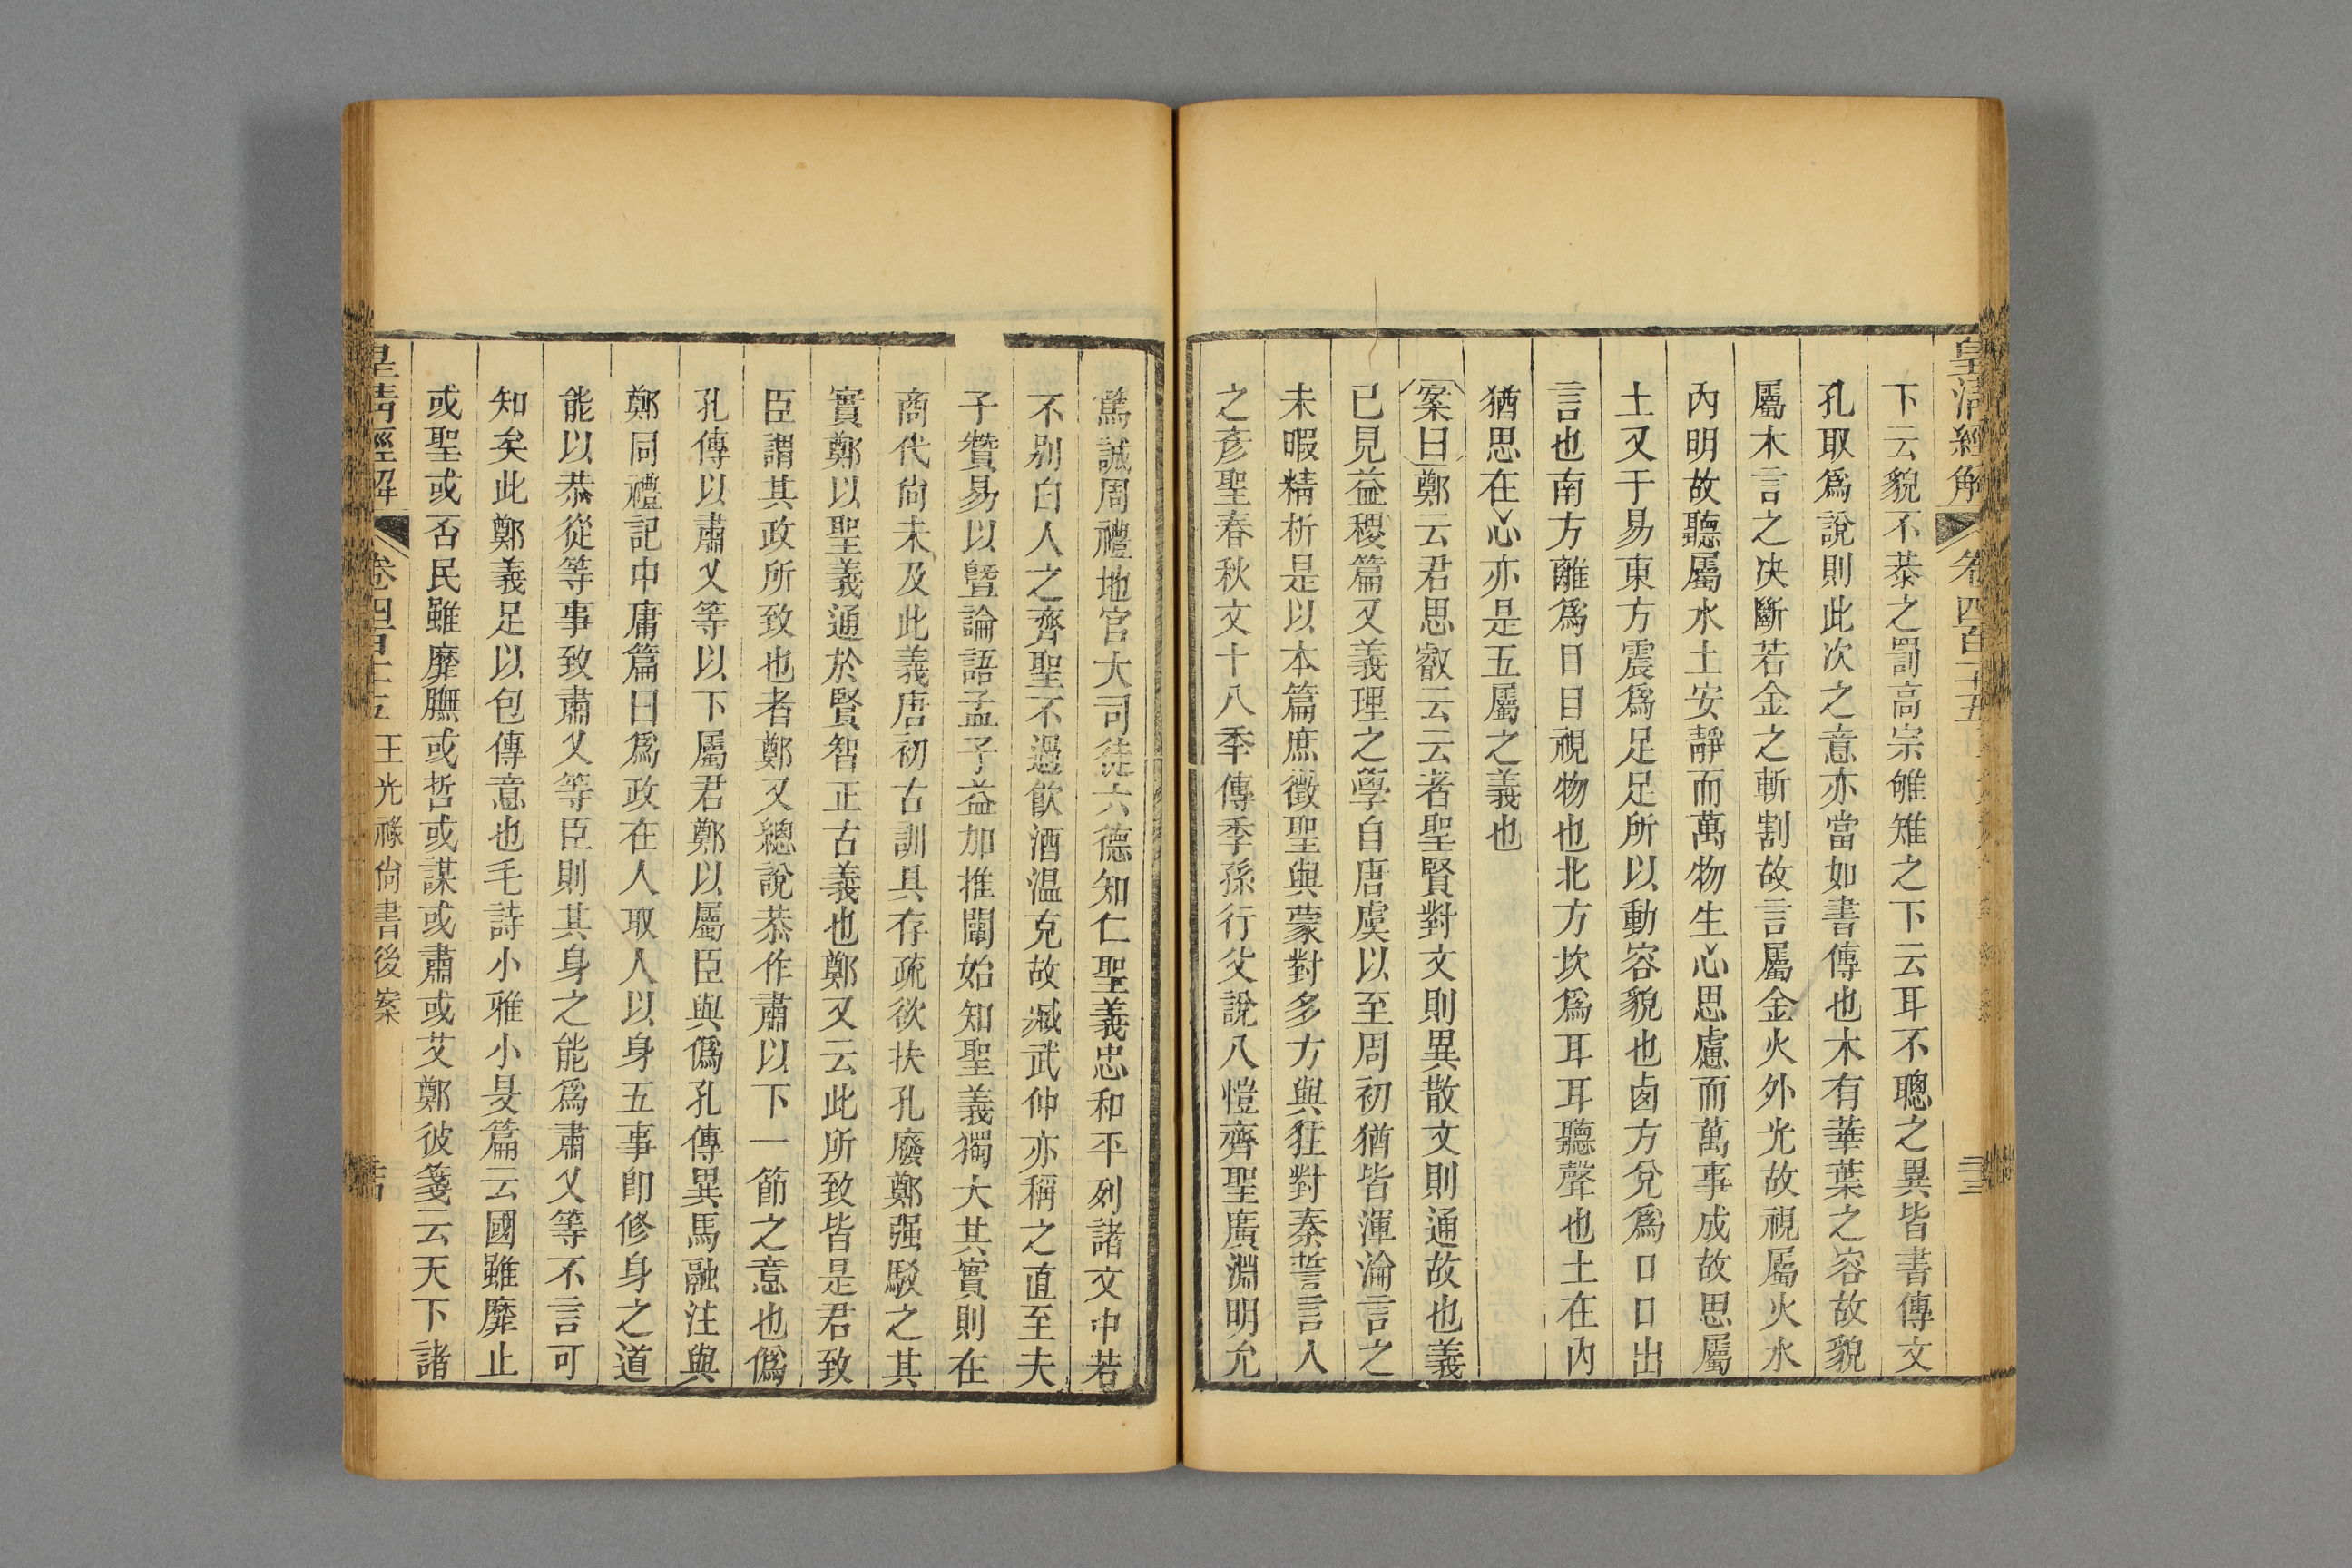 皇清經解 卷四百十五 三
下云貌不恭之罰高宗雊雉之下云耳不聰之異皆書傳文
孔取爲說則此次之意亦當如書傳也木有華葉之容故貌
屬木言之决斷若金之斬割故言屬金火外光故視屬火水
內明故聽屬水土安靜而萬物生心思慮而萬事成故思屬
土又于易東方震爲足足所以動容貌也卤方兌爲口口出
言也南方離爲目目視物也北方坎爲耳耳聽聲也土在內
猶思在心亦是五屬之義也
案曰鄭云君思叡云云者聖賢對文則異散文則通故也義
已見益稷篇又義理之學自唐虞以至周初猶皆渾淪言之
未暇精析是以本篇庶徵聖與蒙對多方與狂對秦誓言人
之彥聖春秋文十八年傳季孫行父說八愷齊聖廣淵明允
篤誠周禮地官大司徒六德知仁聖義忠和平列諸文中若
不别白人之齊聖不過飮酒温克故臧武仲亦稱之直至夫
子贊易以曁論語孟子益加推闡始知聖義獨大其實則在
商代尙未及此義唐初古訓具存疏欲扶孔廢鄭强駁之其
實鄭以聖義通於賢智正古義也鄭又云此所致皆是君致
臣謂其政所致也者鄭又總說恭作肅以下一節之意也僞
孔傳以肅乂等以下屬君鄭以屬臣與僞孔傳異馬融注與
鄭同禮記中庸篇曰爲政在人取人以身五事卽修身之道
能以恭從等事致肅乂等臣則其身之能爲肅乂等不言可
知矣此鄭義足以包傳意也毛詩小雅小旻篇云國雖靡止
或聖或否民雖靡膴或哲或謀或肅或艾鄭彼箋云天下諸
皇清經解 卷四百十五 王光祿尙書後案